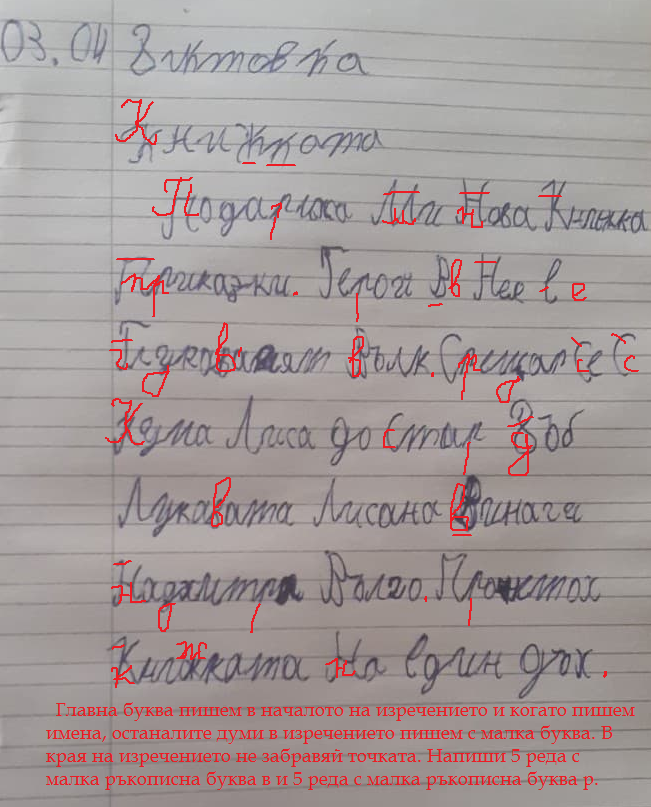 03.04 Диктовка
Книжката
Подариха Ми Нова Книжка
Приказки. Герои Вв Нея е
Глуповатият Вълк. Срещат Се С
Кума Лиса до Стар Дъб
Лукавата Лисана Винаги
Надхитря Вълго. Прочетох
Книжката На един дъх.
Главна буква пишем в началото на изречението и когато пишем
имена, останалите думи в изречението пишем с малка буква. В
края на изречението не забравяй точката. Напиши 5 реда с
малка ръкописна буква в и 5 реда с малка ръкописна буква р.